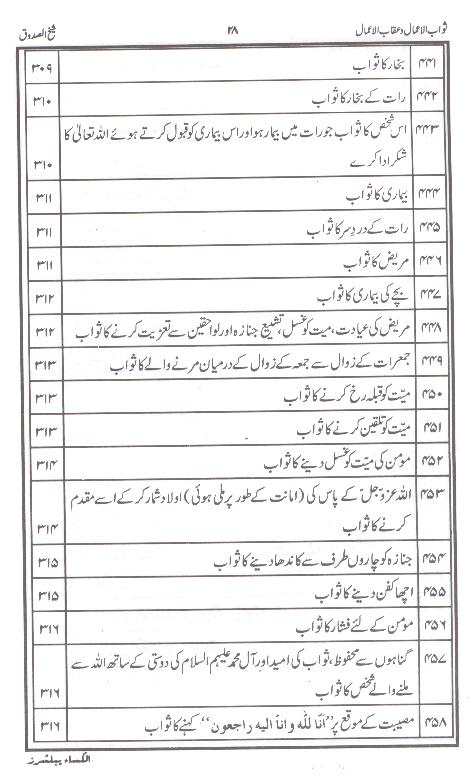 ثواب الاعمال و عقاب الاعمال ۲۸ شیخ الصدوق
۴۴۱ بخار کا ثواب ۳۰۹
۴۴۲ رات کے بخار کا ثواب ۳۱۰
۴۴۳ اس شخص کا ثواب جو رات میں بیمار ہو اور اس بیماری کو قبول کرتے ہوئے اللہ تعالیٰ کا
شکر ادا کرے ۳۱۰
۴۴۴ بیماری کا ثواب ۳۱۱
۴۴۵ رات کے دردِ سر کا ثواب ۳۱۱
۴۴۶ مریض کا ثواب ۳۱۱
۴۴۷ بچے کی بیماری کا ثواب ۳۱۲
۴۴۸ مریض کی عیادت، میت کو غسل، تشییع جنازہ اور لواحقین سے تعزیت کرنے کا ثواب ۳۱۲
۴۴۹ جمعرات کے زوال سے جمعہ کے زوال کے درمیان مرنے والے کا ثواب ۳۱۳
۴۵۰ میّت کو قبلہ رخ کرنے کا ثواب ۳۱۳
۴۵۱ میّت کو تلقین کرنے کا ثواب ۳۱۳
۴۵۲ مومن کی میّت کو غسل دینے کا ثواب ۳۱۴
۴۵۳ اللہ عزّ وجل کے پاس کی (امانت کے طور پر ملی ہوئی) اولاد شمار کر کے اسے مقدم
کرنے کا ثواب ۳۱۴
۴۵۴ جنازہ کو چاروں طرف سے کاندھا دینے کا ثواب ۳۱۵
۴۵۵ اچھا کفن دینے کا ثواب ۳۱۵
۴۵۶ مومن کے لئے فشار کا ثواب ۳۱۶
۴۵۷ گناہوں سے محفوظ، ثواب کی امید اور آل محمد علیہم السلام کی دوستی کے ساتھ اللہ سے
ملنے والے شخص کا ثواب ۳۱۶
۴۵۸ مصیبت کے موقع پر ”انّا للّٰه وانا اليه راجعون“ کہنے کا ثواب ۳۱۶
الکساء پبلشرز